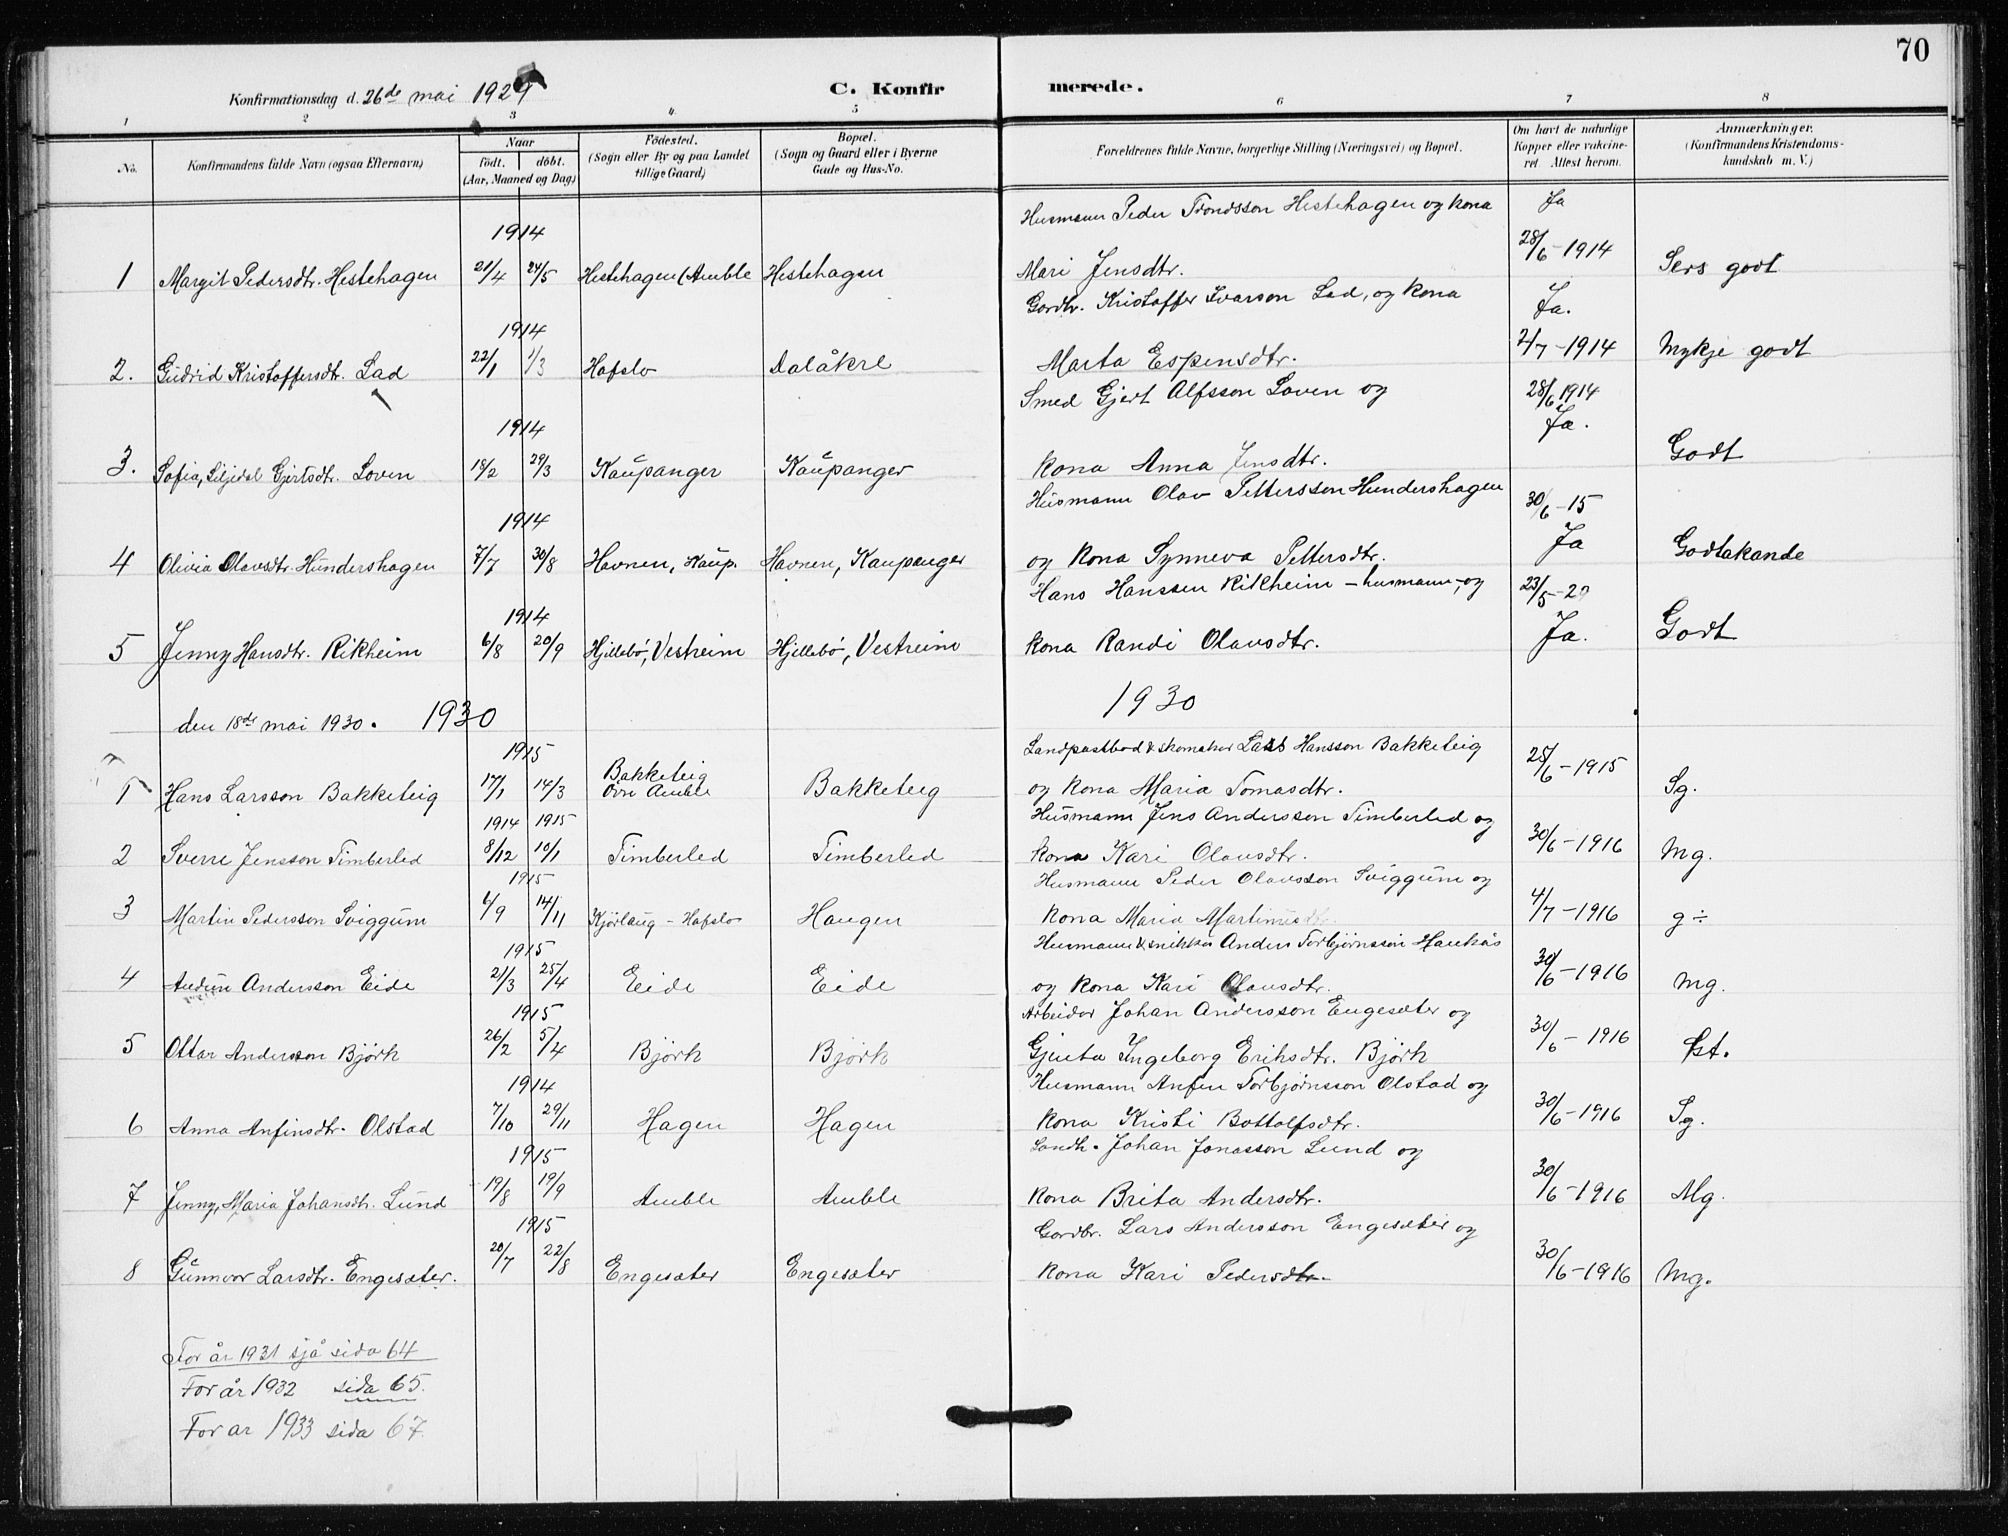 70
Konfirmationsdag d. 26de mai 1929 C. Konfirmerede.
1 2 3 4 5 6 7 8
No.
Konfirmandens fulde Navn (ogsaa Efternavn)
Naar
født. døbt.
(Aar, Maaned og Dag)
Fødested.
(Sogn eller By og paa Landet
tillige Gaard)
Bopæl.
(Sogn og Gaard eller i Byerne
Gade og Hus-No.
Forældrenes fulde Navne, borgerlige Stilling (Næringsvei) og Bopæl.
Om havt de naturlige
Kopper eller vakcine-
ret Attest herom.
Anmærkninger.
(Konfirmandens Kristendoms-
kundskab m. V.)
Husmann Peder Trondsson Hestehagen og kona Ja
1914
1 Margit Pedersdtr. Hestehagen 21/4 24/5 Hestehagen (Amble Hestehagen Mari Jensdtr. 28/6-1914 Sers godt
Gardbr. Kristoffer Ivarson Lad, og kona Ja.
1914
2. Gudrid Kristoffersdt. Lad 22/1 1/3 Hafslo Dalåkre Marta Espensdtr. 2/7-1914 Mykje godt
Smed Gjert Alfsson Loven og 28/6 1914
1914 Ja.
3. Sofia, Siljedal Gjertsdtr. Loven 18/2 29/3 Kaupanger Kaupanger kona Anna Jensdtr. Godt
Husmann Olav Pettersson Hundershagen 30/6-15
1914
4 Olivia Olavsdtr. Hundershagen 7/7 30/8 Havnen, Kaup. Havnen, Kaupanger og kona Synneva Pettersdtr. Ja Godtakande
Hans Hanssen Rikheim - husmann, og 23/5-29
1914
5 Jenny Hansdtr. Rikheim 6/8 20/9 Hjellebø, Vestreim Hjellebø, Vestreim kona Randi Olavsdtr. Ja. Godt
den 18de mai 1930. 1930 1930
1915 Landpostbod & skomakar Lars Hansson Bakketeig
1 Hans Larsson Bakketeig 17/1 14/3 Bakketeig Øvre Amble Bakketeig og kona Maria Tomasdtr. 25/6-1915 Sg.
1914 1915 Husmann Jens Andersson Timberled og
2 Sverre Jensson Timberled 8/12 10/1 Timberled Timberled kona Kari Olavsdtr. 30/6-1916 Mg.
1915 Husmann Peder Olavsson Sviggum og
3 Martin Pedersson Sviggum 6/9 14/11 Kjørlaug - Hafslo Haugen kona Maria Martinusdtr. 4/7-1916 g÷
1915 Husmann & snikkar Anders Torbjørnsson Haukås
4 Audun Andersson Eide 21/3 25/4 Eide Eide og kona Kari Olavsdtr. 30/6-1916 Mg.
1915 Arbeidar Johan Andersson Engesæter og
5 Ottar Andersson Bjørk 26/2 5/4 Bjørk Bjørk Gjenta Ingeborg Eriksdtr. Bjørk 30/6-1916
1914 Husmann Anfin Torbjørnsson Olstad og
6 Anna Anfinsdtr. Olstad 7/10 29/11 Hagen Hagen kona Kristi Bottolfsdtr. 30/6-1916 Sg.
1915 Landh. Johan Jonasson Lund og
7 Jenny, Maria Johansdtr. Lund 19/8 19/9 Amble Amble kona Brita Andersdtr. 30/6-1916 Mg.
1915 Gardbr. Lars Andersson Engesæter og
8 Gunnvor Larsdtr. Engesæter. 20/7 22/8 Engesæter Engesæter kona Kari Pedersdtr. 30/6-1916 Mg.
For år 1931 sjå sida 64
For år 1932 sida 65.
For ar 1933 sida 67.